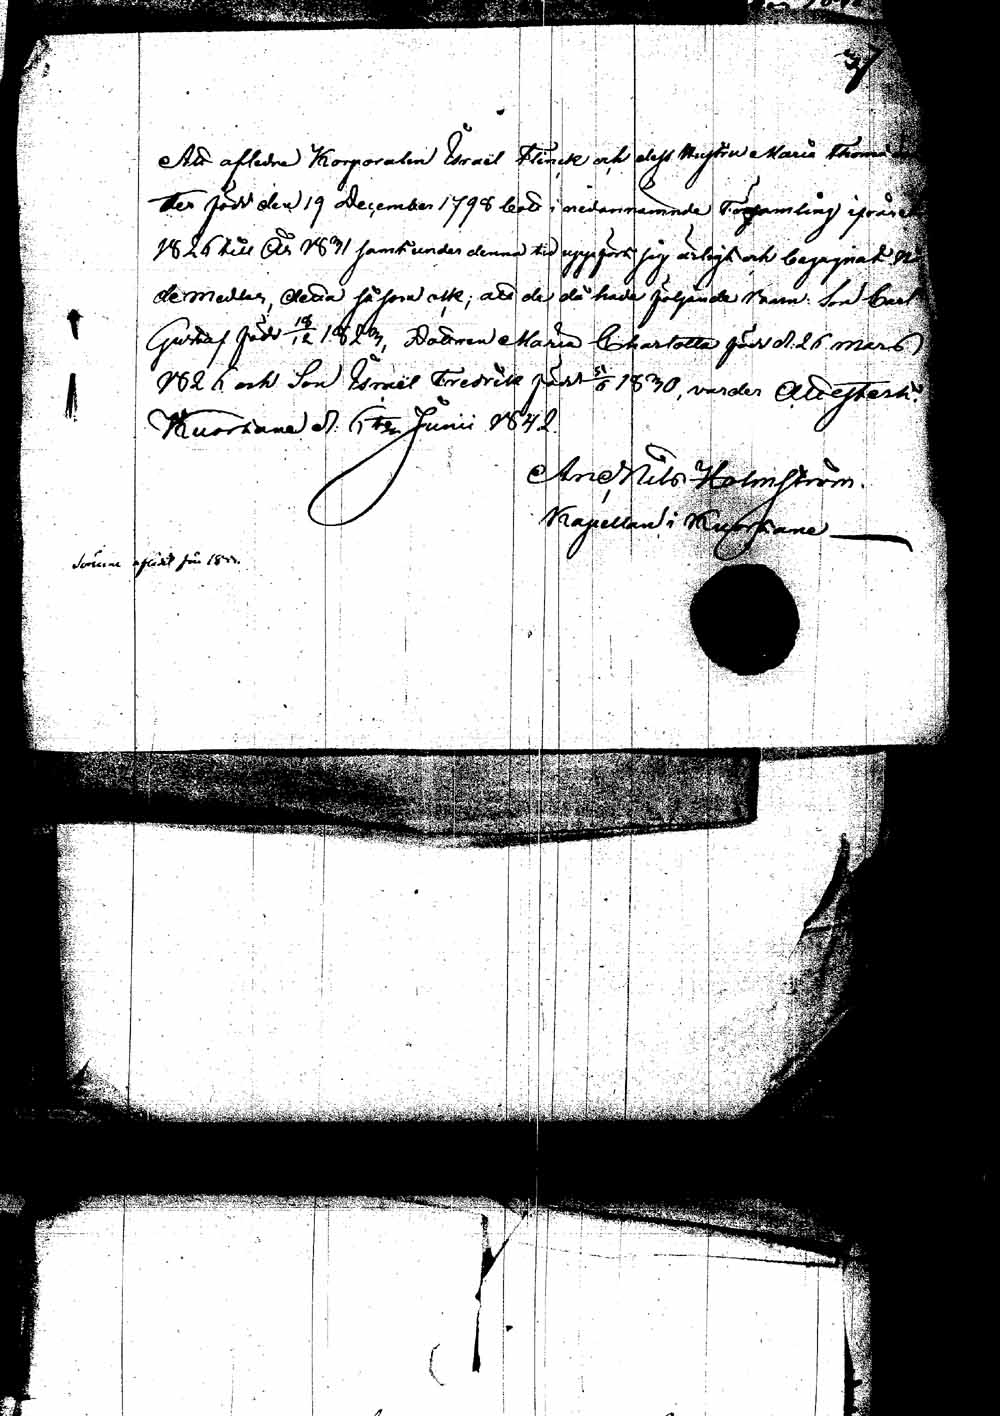 37
Att aflidne Korporalen Israël Flinck och dess Hustru Maria Thomæ
ter född den 19 December 1798 bott i nedannämnde Församling ifrån
1826 till År 1831 samt under denna tid uppfört sig ärligt och begagnat
de medlen, detta såsom ock, att de då hade följande Barn: Son Carl
Gustaf född 18/12 1823, Dottren Maria Charlotta född d. 26 mars
1826 och Son Israël Fredrik född 1830, varder Attesteradt.
Kuortane d. Junii 1842.
And. Nils Holmström.
Kapellan i Kuortane